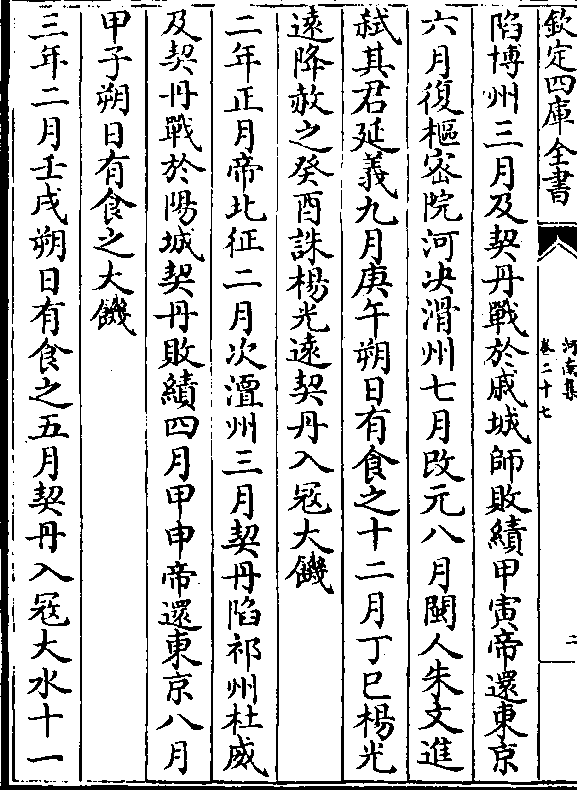 欽定四庫全書
河南集
卷二十七
二
陷博州三月及契丹戰於戚城師敗績甲寅帝還東京
六月復樞宻院河决滑州七月改元八月閩人朱文進
弑其君延義九月庚午朔日有食之十二月丁巳楊光
遠降赦之癸酉誅楊光遠契丹入冦大饑
二年正月帝北征二月次澶州三月契丹陷祁州杜威
及契丹戰於陽城契丹敗績四月甲申帝還東京八月
甲子朔日有食之大饑
三年二月壬戌朔日有食之五月契丹入冦大水十一